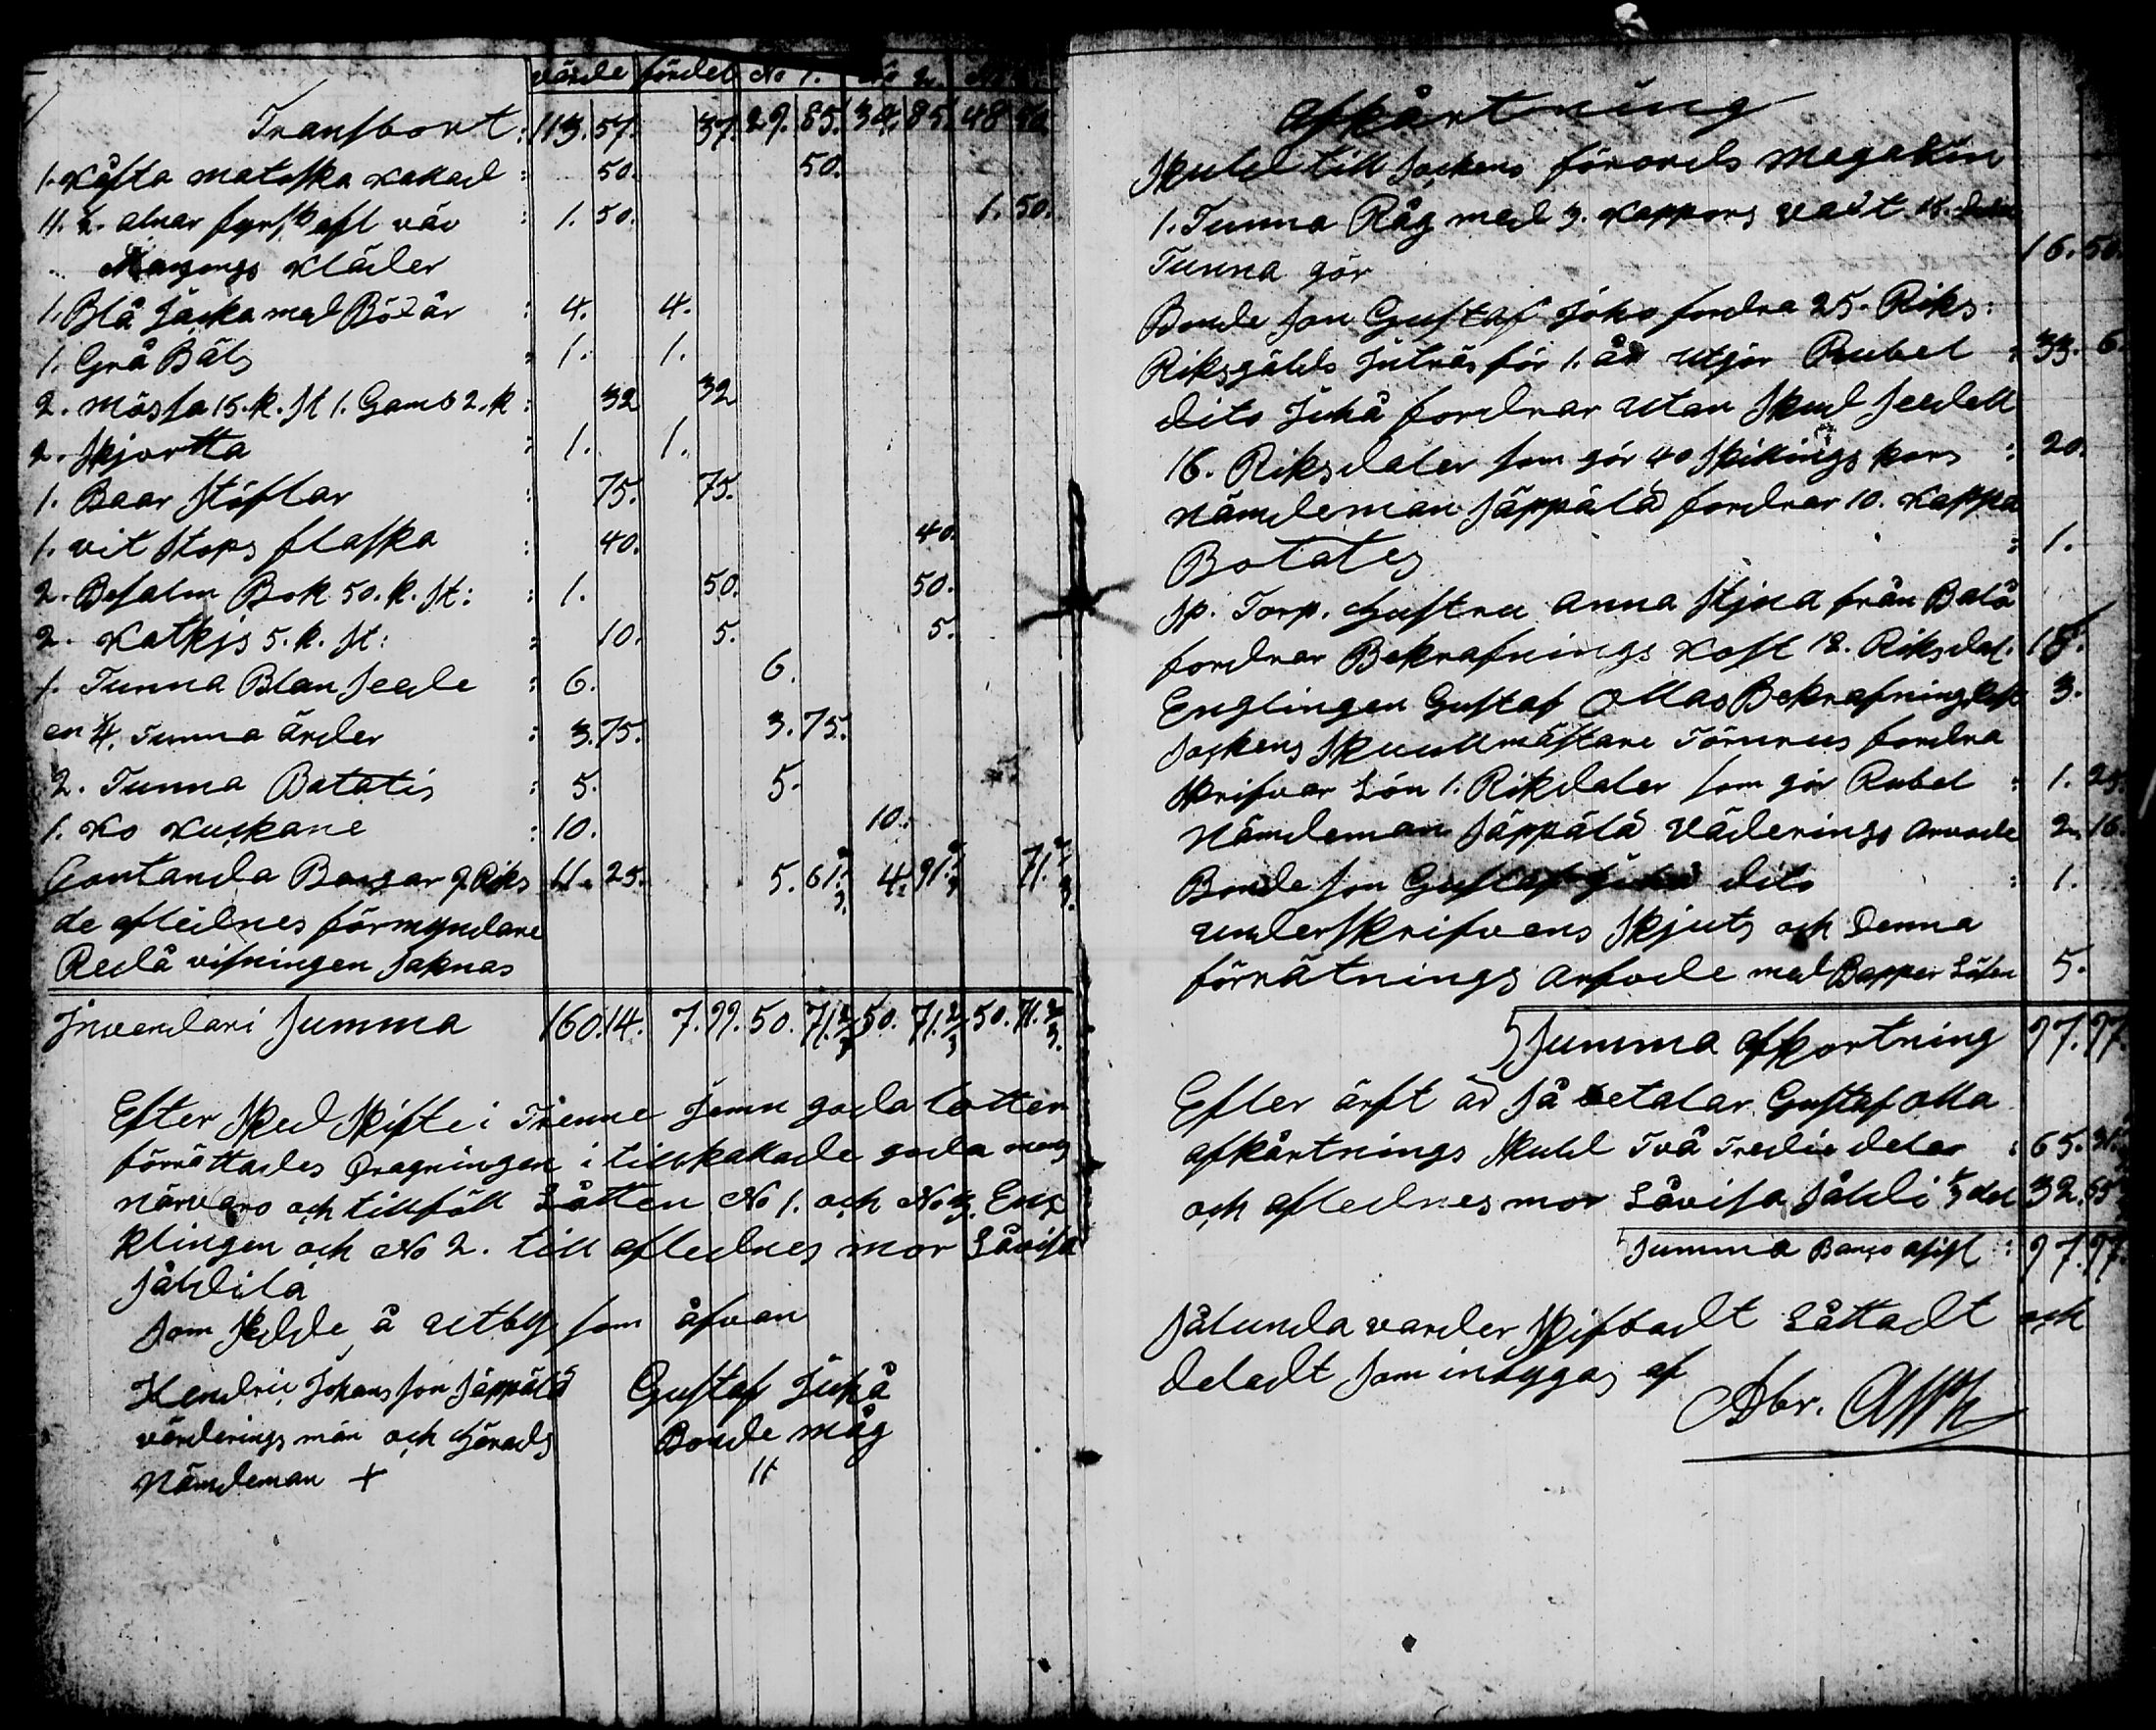 värde fördel No 1. No 2
Transbort : 113. 57. 37. 29. 85. 34. 85. 48
1. Kåsta mataska kakad : 50. 50.
11. 2. alnar fyrskaft väv : 1. 50. 1. 50.
Mangangs Kläder
1. Blå Jacka med Böxår : 4. 4.
1. Grå Bälg : 1. 1.
2. mössa 15. k. st 1. Gamb 2. k : 32 32
2. Skjortta : 1. 1.
1. Baar Stöflar : 75. 75.
1. vit Stops flaska : 40. 40.
2. Besalm Bok 50. k. st : : 1. 50. 50.
2. Katkjs 5. k. st : : 10. 5. 5.
1. Tunna Blan Seade : 6. 6.
en 4/. Tunna ärder : 3. 75. 3. 75.
2. Tunna Batatis : 5. 5.
1. Ko Kuskane : 10. 10.
Contanda Bangar 9 Riks 11. 25. 5. 61 2/3. 4. 91 2/3 71. 2/3.
de aflednes förmyndare
Redå visningen saknas
Invendari Summa 160. 14. 7. 99. 50. 71. 2/3 50. 71. 2/3 50. 71. 2/3.
Efter Sked Skifte i Trenne Jemn goda lotter
förrättades Dragningen i tillkakade goda mens
närvaro och tillföll Låtten No 1. och No 3. Enx
klingen och No 2. till aflednes mor Låvisa
Jåhlilå
som Skedde å Utby som åfvan
Hendric Johansson Jäppälä Gustaf Jukå
värderings män och Härads Bonde måg
Nämdeman +
afkårtning
Skuld till Sockens förords Magakin
1. Tunna Råg med 3. Kappors vext 15.
Tunna gör 16. 50.
Bonde son Gustaf Joko fordra 25. Riks :
Riksgälds Juträs för 1. år utgör Rubel : 33. 6.
dito Juhå fordrar utan Skud Seedell
16. Riksdaler som gör 40 Skillings kors : 20.
Nämdeman Jäppälä fordrar 10. Kappa
Botates : 1.
Sp. Torp. Hustru Anna Stjna från Balå
fordrar Bekrafnings Kost 12. Riksdal. 15.
Englingen Gustaf Ollas Bekrafning Kost 3.
Sockens Skuullmästare Törnrus fordra
Skrifvar Lön 1. Rikdaler som gör Rubel : 1. 25.
Nämdeman Jäppälä Väderings arvode 2. 16.
Bonde son Gustaf Juhå dito : 1.
underskrifvens Skjuts och Denna
förrätnings arfvode med Bapper Löken 5.
Summa afkortning 97. 97.
Efter ärft är så betalar Gustaf Olla
afkårtnings Skuld Två Tredie delar : 65. 31.
och aflednes mor Låvisa Jåhli 1/3 del 32. 65
Summa Banco afift : 97. 97.
Sålunda varder Skiftadt Låttadt och
deladt som intygas af
Abr.